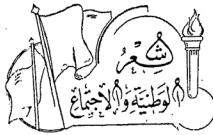 شِعْرُ
الوطنية والاجتماع